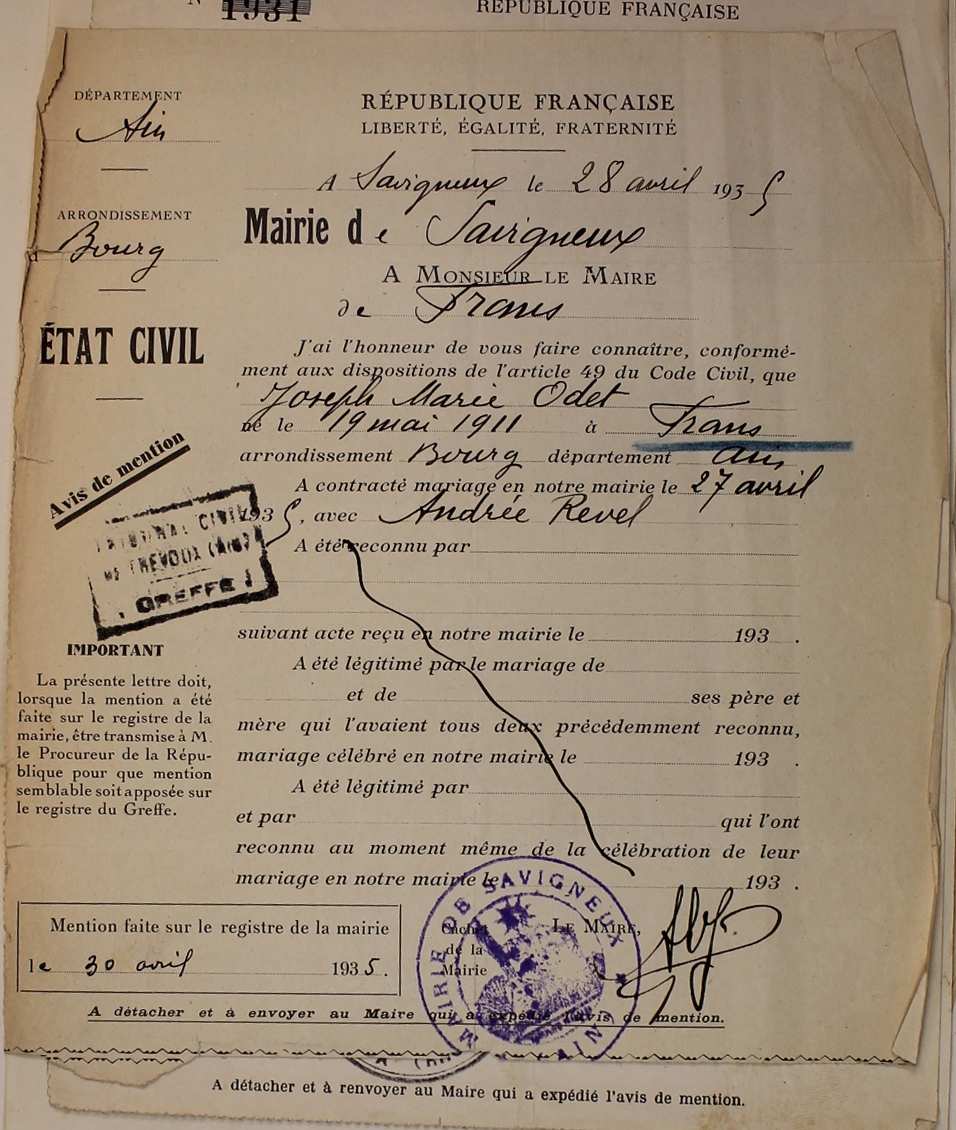 N° 1931
RÉPUBLIQUE FRANÇAISE
DÉPARTEMENT
Ain
ARRONDISSEMENT
d Bourg
ÉTAT CIVIL
Avis de mention
TRIBUNAL CIVIL
DE TREVOUX (AIN)
GREFFE
IMPORTANT
La présente lettre doit,
lorsque la mention a été
faite sur le registre de la
mairie, être transmise à M.
le Procureur de la Répu-
blique pour que mention
semblable soit apposée sur
le registre du Greffe.
RÉPUBLIQUE FRANÇAISE
LIBERTÉ, ÉGALITÉ, FRATERNITÉ
A Savigneux le 28 avril 1935
Mairie de Savigneux
A MONSIEUR LE MAIRE
de Frans
J'ai l'honneur de vous faire connaître, conformé-
ment aux dispositions de l'article 49 du Code Civil, que
Joseph Marie Odet
né le 19 mai 1911 à Frans
arrondissement Bourg département Ain
A contracté mariage en notre mairie le 27 avril
1935, avec Andrée Revel
A été reconnu par
suivant acte reçu en notre mairie le 193 .
A été légitimé par le mariage de
et de ses père et
mère qui l'avaient tous deux précédemment reconnu,
mariage célébré en notre mairie le 193 .
A été légitimé par
et par qui l'ont
reconnu au moment même de la célébration de leur
mariage en notre mairie le 193 .
Cachet
de la
Mairie
LE MAIRE,
MAIRIE DE SAVIGNEUX
AIN
Mention faite sur le registre de la mairie
le 30 avril 1935.
A détacher et à envoyer au Maire qui a expédié l'avis de mention.
A détacher et à renvoyer au Maire qui a expédié l'avis de mention.